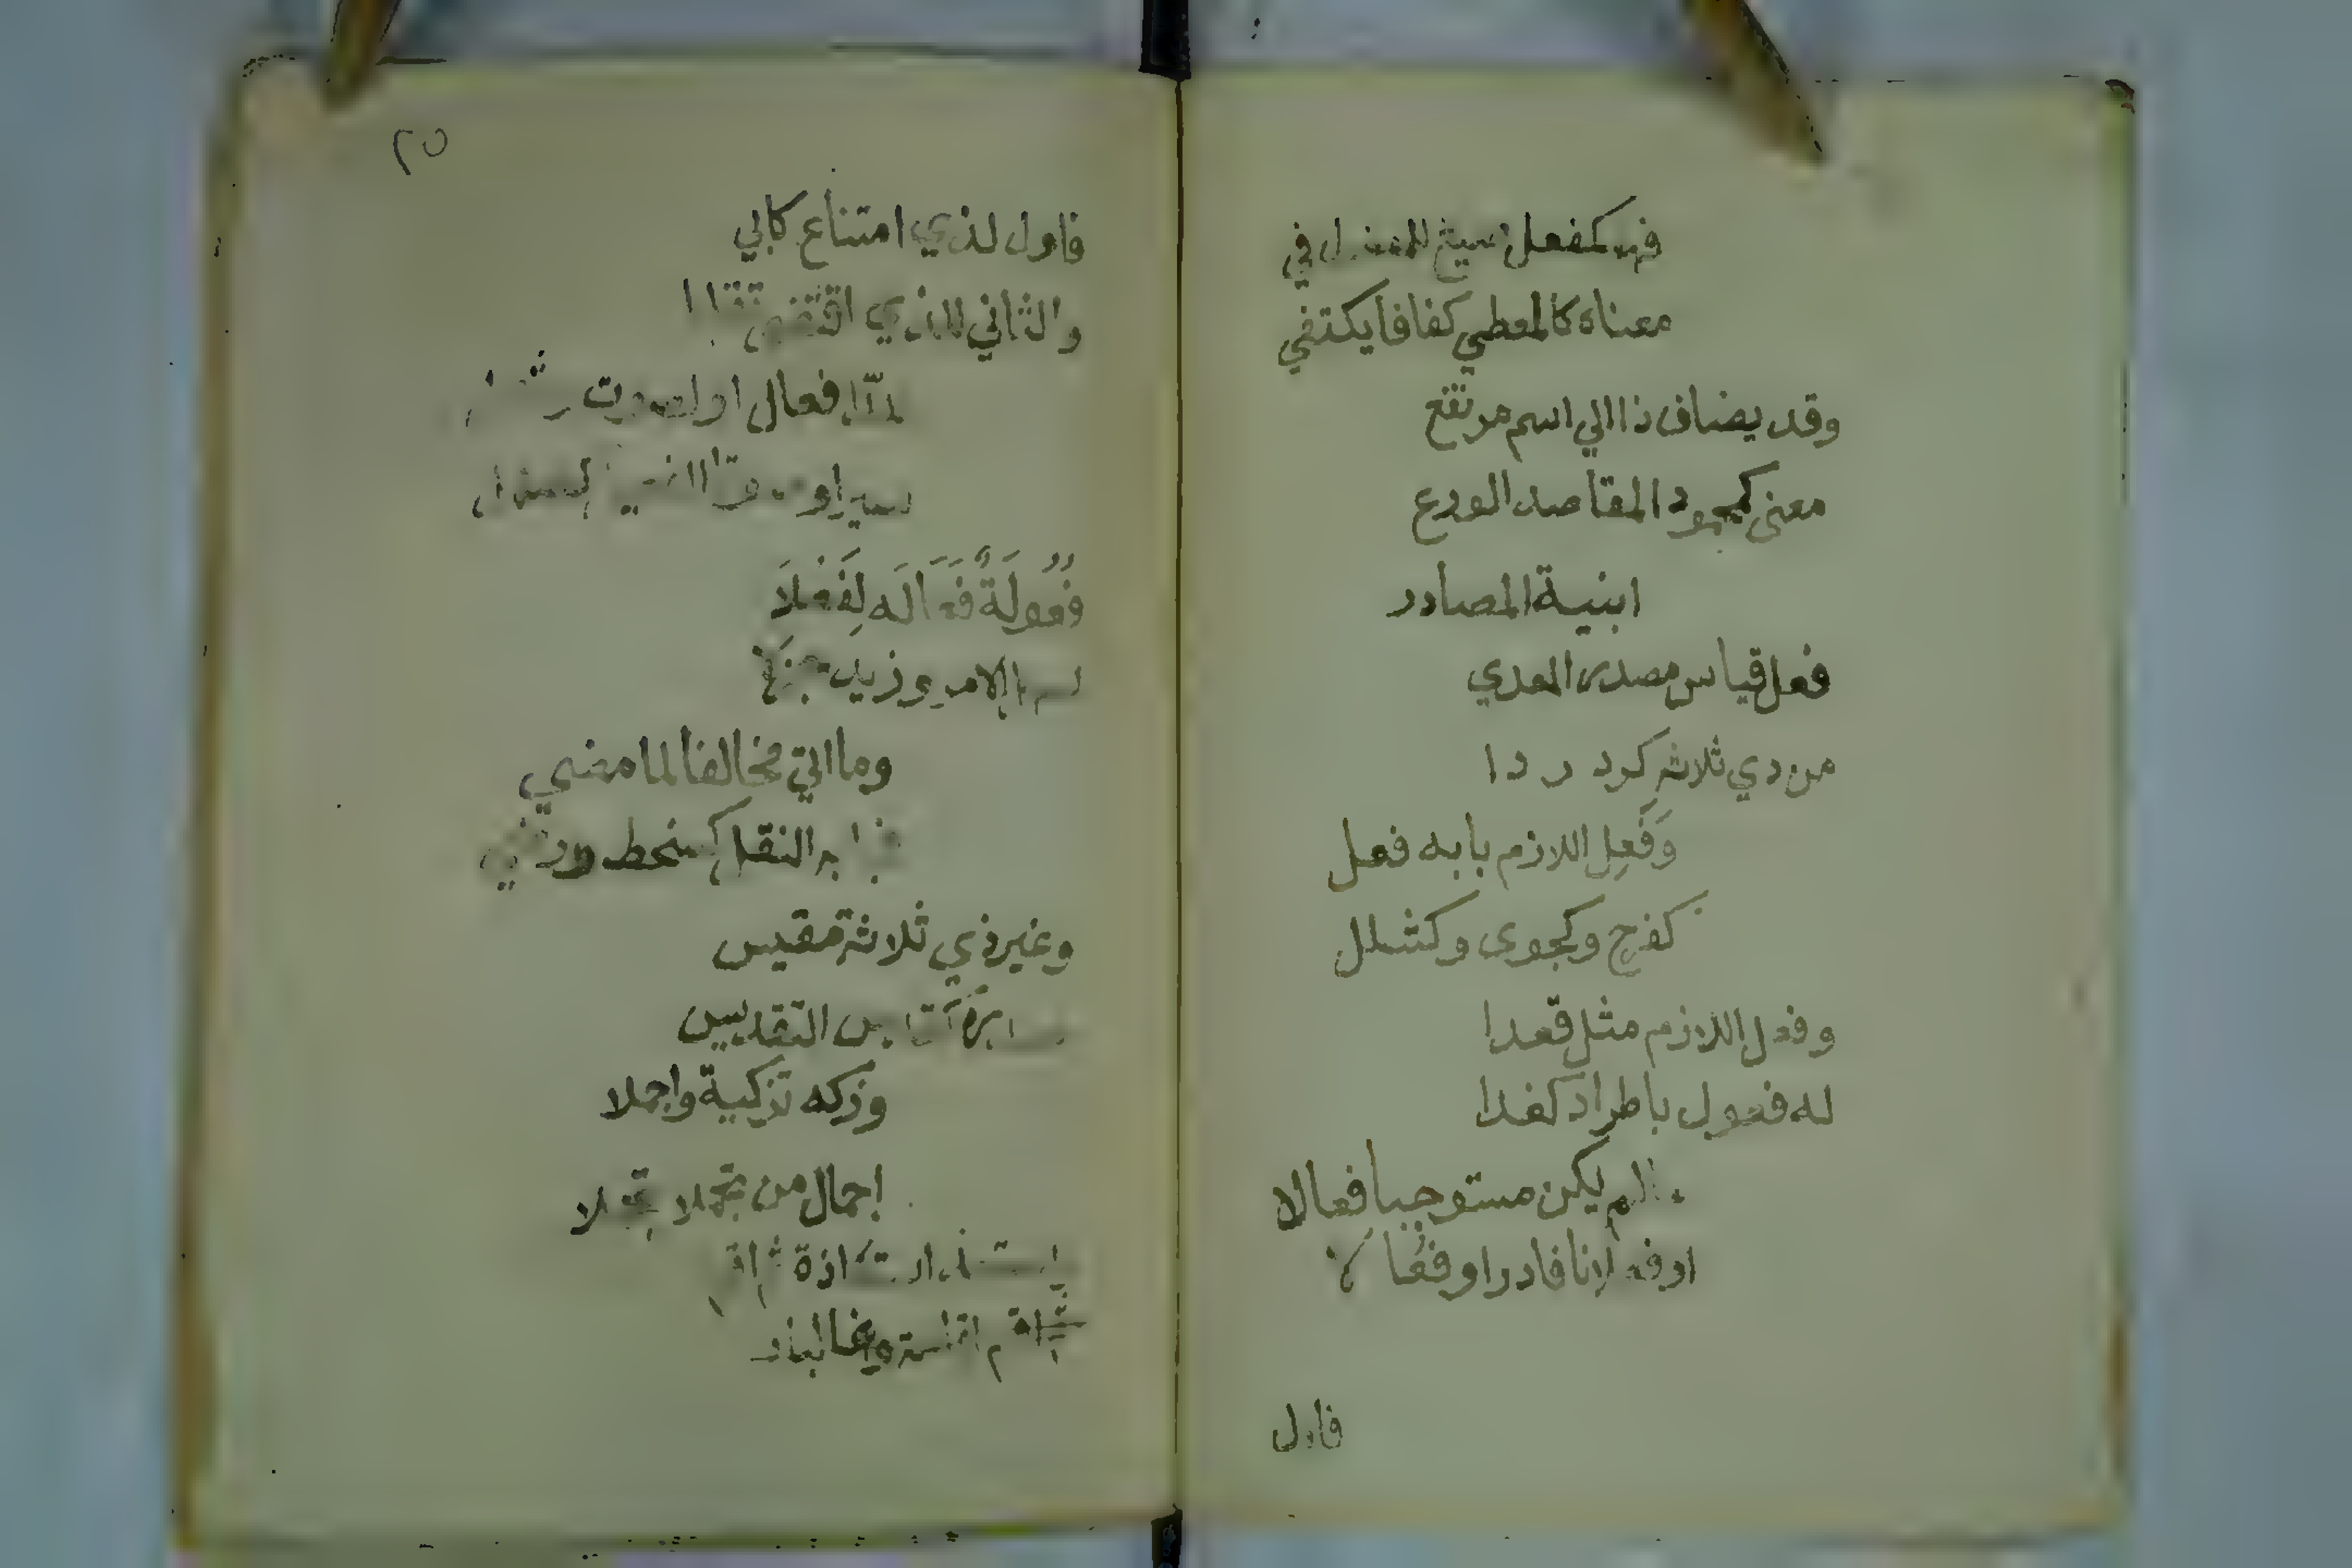 فهو كفعل صيغ للمفعول في
معناه كالمعطي كفافا يكتفي
وقد يضاف ذا الي اسم مرتفع
معني كمحمود المقاصد الورع
ابنية المصادر
فعل قياس مصدر المعدي
من دي ثلاثة كرد ردا
وَفَعِل اللازم بابه فعل
كفرح وكجوى وكشلل
وفعل اللازم مثل قعدا
له فعول باطراد كغدا
مالم يكن مستوجبا فعالا
اوفعلانا فادر اوفعالا
فاول
٢٥
فاول لذي امتناع كابي
والثاني للذي اقتضي تقلبا
للدا فعال او لصوت
سيرا وصوتا كصهل
فُعُولَةٌ فَعَالَه لِفَعُلَا
الامر وزيد
وما اتي مخالفا لما مضي
النقل كسخط ورضي
وغير ذي ثلاثة مقيس
التقديس
وزكه تزكية واجملا
اجمال من تجملا تجملا
استعاذة
اقامة وغالبا ذا